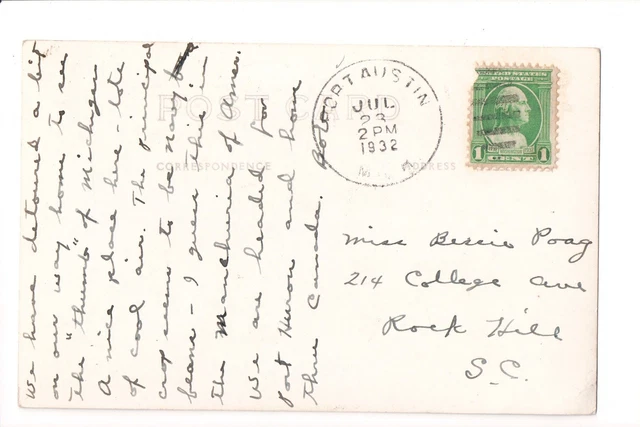 We have detoured a bit
on our way home to see
the "thumb" of Michigan
A nice place here - lots
of cool air. The principal
crop seems to be Navy
beans - I guess this is
the Manchuria of Amer.
We are headed for
Port Huron and home
thru Canada.
POST CARD
CORRESPONDENCE
ADDRESS
PORT AUSTIN
JUL
23
2 PM
1932
UNITED STATES
POSTAGE
1 1
WASHINGTON
Miss Bessie Poag
214 College Ave
Rock Hill
S.C.